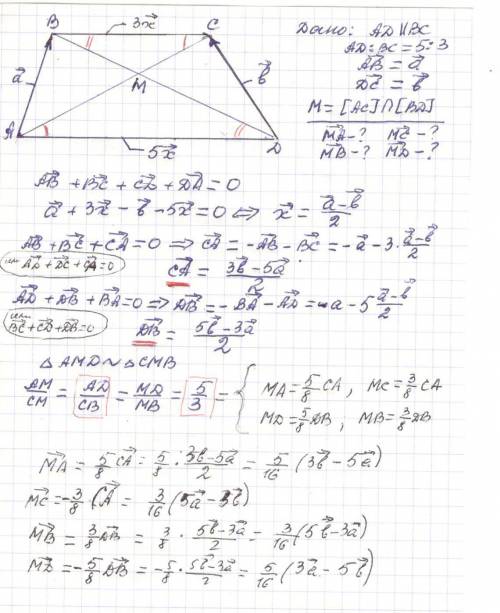 B 3x⃗ C
a⃗ M b⃗
A 5x⃗ D
Дано: AD ∥ BC
AD:BC = 5:3
A⃗B = a⃗
D⃗C = b⃗
M = [AC]∩[BD]
M⃗A - ? M⃗C - ?
M⃗B - ? M⃗D - ?
A⃗B + B⃗C + C⃗D + D⃗A = 0
a⃗ + 3x⃗ - b⃗ - 5x⃗ = 0 ⇔ x⃗ = (a⃗-b⃗)/2
A⃗B + B⃗C + C⃗A = 0 ⇒ C⃗A = -A⃗B - B⃗C = -a⃗ - 3·(a⃗-b⃗)/2
или A⃗D + D⃗C + C⃗A = 0
C⃗A = (3b⃗ - 5a⃗)/2
A⃗D + D⃗B + B⃗A = 0 ⇒ D⃗B = -B⃗A - A⃗D = a - 5(a⃗-b⃗)/2
или B⃗C + C⃗D + D⃗B = 0
D⃗B = (5b⃗ - 3a⃗)/2
△AMD ~ △CMB
AM/CM = AD/CB = MD/MB = 5/3 = { MA = 5/8 CA, MC = 3/8 CA
MD = 5/8 DB, MB = 3/8 DB
M⃗A = 5/8 C⃗A = 5/8 · (3b⃗-5a⃗)/2 = 5/16 (3b⃗ - 5a⃗)
M⃗C = -3/8 C⃗A = 3/16 (5a⃗ - 3b⃗)
M⃗B = 3/8 D⃗B = 3/8 · (5b⃗-3a⃗)/2 = 3/16 (5b⃗ - 3a⃗)
M⃗D = -5/8 D⃗B = -5/8 · (5b⃗-3a⃗)/2 = 5/16 (3a⃗ - 5b⃗)